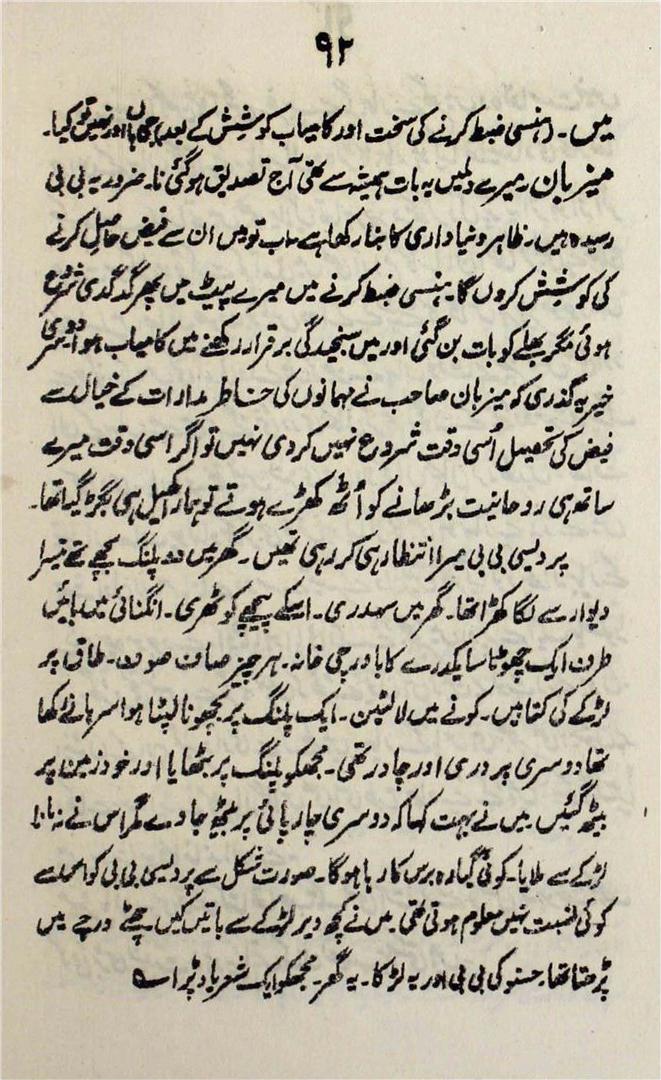 ۹۲
میں۔ (ہنسی ضبط کرنے کی سخت اور کامیاب کوشش کے بعد) جی ہاں اور نہیں تو کیا۔
میزبان۔ میرے دلمیں یہ بات ہمیشہ سے تھی آج تصدیق ہوگئی نا۔ ضرور یہ بی بی
رسیدہ ہیں۔ ظاہرہ دنیاداری کا بنا رکھا ہے۔ اب تو میں ان سے فیض حاصل کرنے
کی کوشش کروں گا۔ ہنسی ضبط کرنے میں میرے پیٹ میں پھر گدگدی شروع
ہوئی مگر بھلے کو بات بن گئی اور میں سنجیدگی برقرار رکھنے میں کامیاب ہوا دوسری
خیریہ گذری کو میزبان صاحب نے مہمانوں کی خاطر مدارات کے خیال سے
فیض کی تحصیل اُسی وقت شروع نہیں کردی نہیں تو اگر اسی وقت میرے
ساتھ ہی روحانیت بڑھانے کو اُٹھ کھڑے ہوتے تو ہمارا کھیل ہی بگڑ گیا تھا۔
پردیسی بی بی میرا انتظار ہی کر رہی تھیں۔ گھر میں دو پلنگ بچھے تھے تیسرا
دیوار سے لگا کھڑا تھا۔ گھر میں سہ دری۔ اسکے پیچھے کوٹھری۔ انگنائی میں بائیں
طرف ایک چھوٹا سا یکدرے کا باورچی خانہ۔ ہر چیز صاف صوف۔ طاق پر
لڑکے کی کتابیں۔ کونے میں لالٹین۔ ایک پلنگ پر بچھونا لپٹا ہوا سرہانے رکھا
تھا دوسری پر دری اور چادر تھی۔ مجھکو پلنگ پر بٹھایا اور خود زمین پر
بیٹھ گئیں میں نے بہت کہا کہ دوسری چارپائی پر بیٹھ جاوے مگر اس نے نہ مانا
لڑکے سے ملایا۔ کوئی گیارہ برس کا رہا ہوگا۔ صورت شکل سے پردیسی بی بی کو اس سے
کوئی نسبت نہیں معلوم ہوتی تھی میں نے کچھ دیر لڑکے سے باتیں کیں۔ چھٹے درجے میں
پڑھتا تھا۔ حسنو کی بی بی اور یہ لڑکا۔ یہ گھر۔ مجھکو ایک شعر یاد پڑا ہے